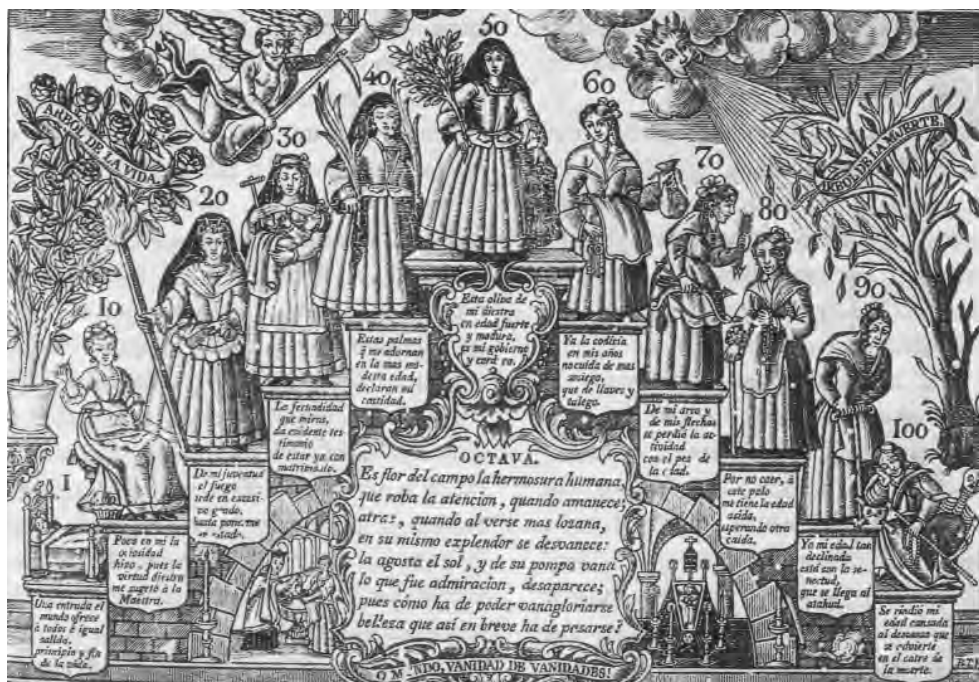 ARBOL DE LA VIDA.
ARBOL DE LA MUERTE.
1
10
20
30
40
50
60
70
80
90
100
Una entrada el
mundo ofrece
à todos è igual
salida,
principio y fin
de la vida.
Poco en mi la
ociosidad
hizo, pues la
virtud diestra
me sugetó à la
Maestra.
De mi juventud
el fuego
sede en excesi-
vo grado,
La fecundidad
que miras,
da evidente tes-
timonio
de estar ya con
matrimonio.
Estas palmas
q̃ me adornan
en la mas mo-
desta edad,
declaran mi
castidad.
Esta oliva de
mi diestra
en edad fuerte
y madura,
es mi gobierno
y
Ya la codicia
en mis años
no cuida de mas
sosiego,
que de llaves y
talego.
De mi arco y
de mis flechas
se perdió la ac-
tividad
con el pes de
la edad.
Por no caer, à
este palo
me tiene la edad
asida,
esperando otra
caida.
Ya mi edad tan
declinada
está con la se-
nectud,
que se llega al
atahud.
Se rindió mi
edad cansada
al descanso que
se advierte
en el catre de
la muerte.
OCTAVA.
Es flor del campo la hermosura humana,
que roba la atencion, quando amanece;
atras, quando al verse mas lozana,
en su mismo explendor se desvanece:
la agosta el sol, y de su pompa vana
lo que fue admiracion, desaparece;
pues cómo ha de poder vanagloriarse
belleza que así en breve ha de pesarse?
O M NDO, VANIDAD DE VANIDADES!